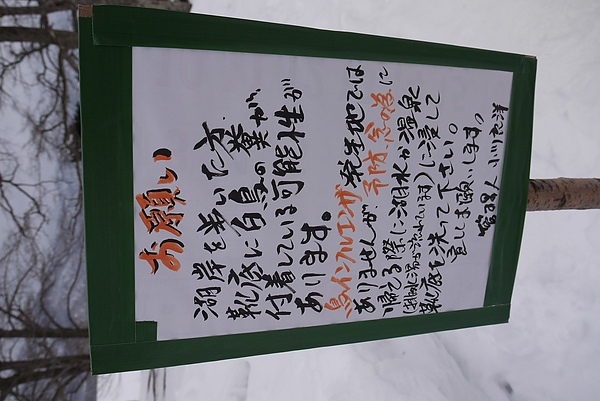 お願い
湖岸を歩いた方、
靴底に白鳥の糞が、
付着している可能性が
あります。
鳥インフルエンザ発生地では
ありませんが、予防、念の為に
帰る際に湖水か温泉
(湖畔に湯が流れています)に浸して
靴底を洗って下さい。
宜しくお願いします。
管理人 小川